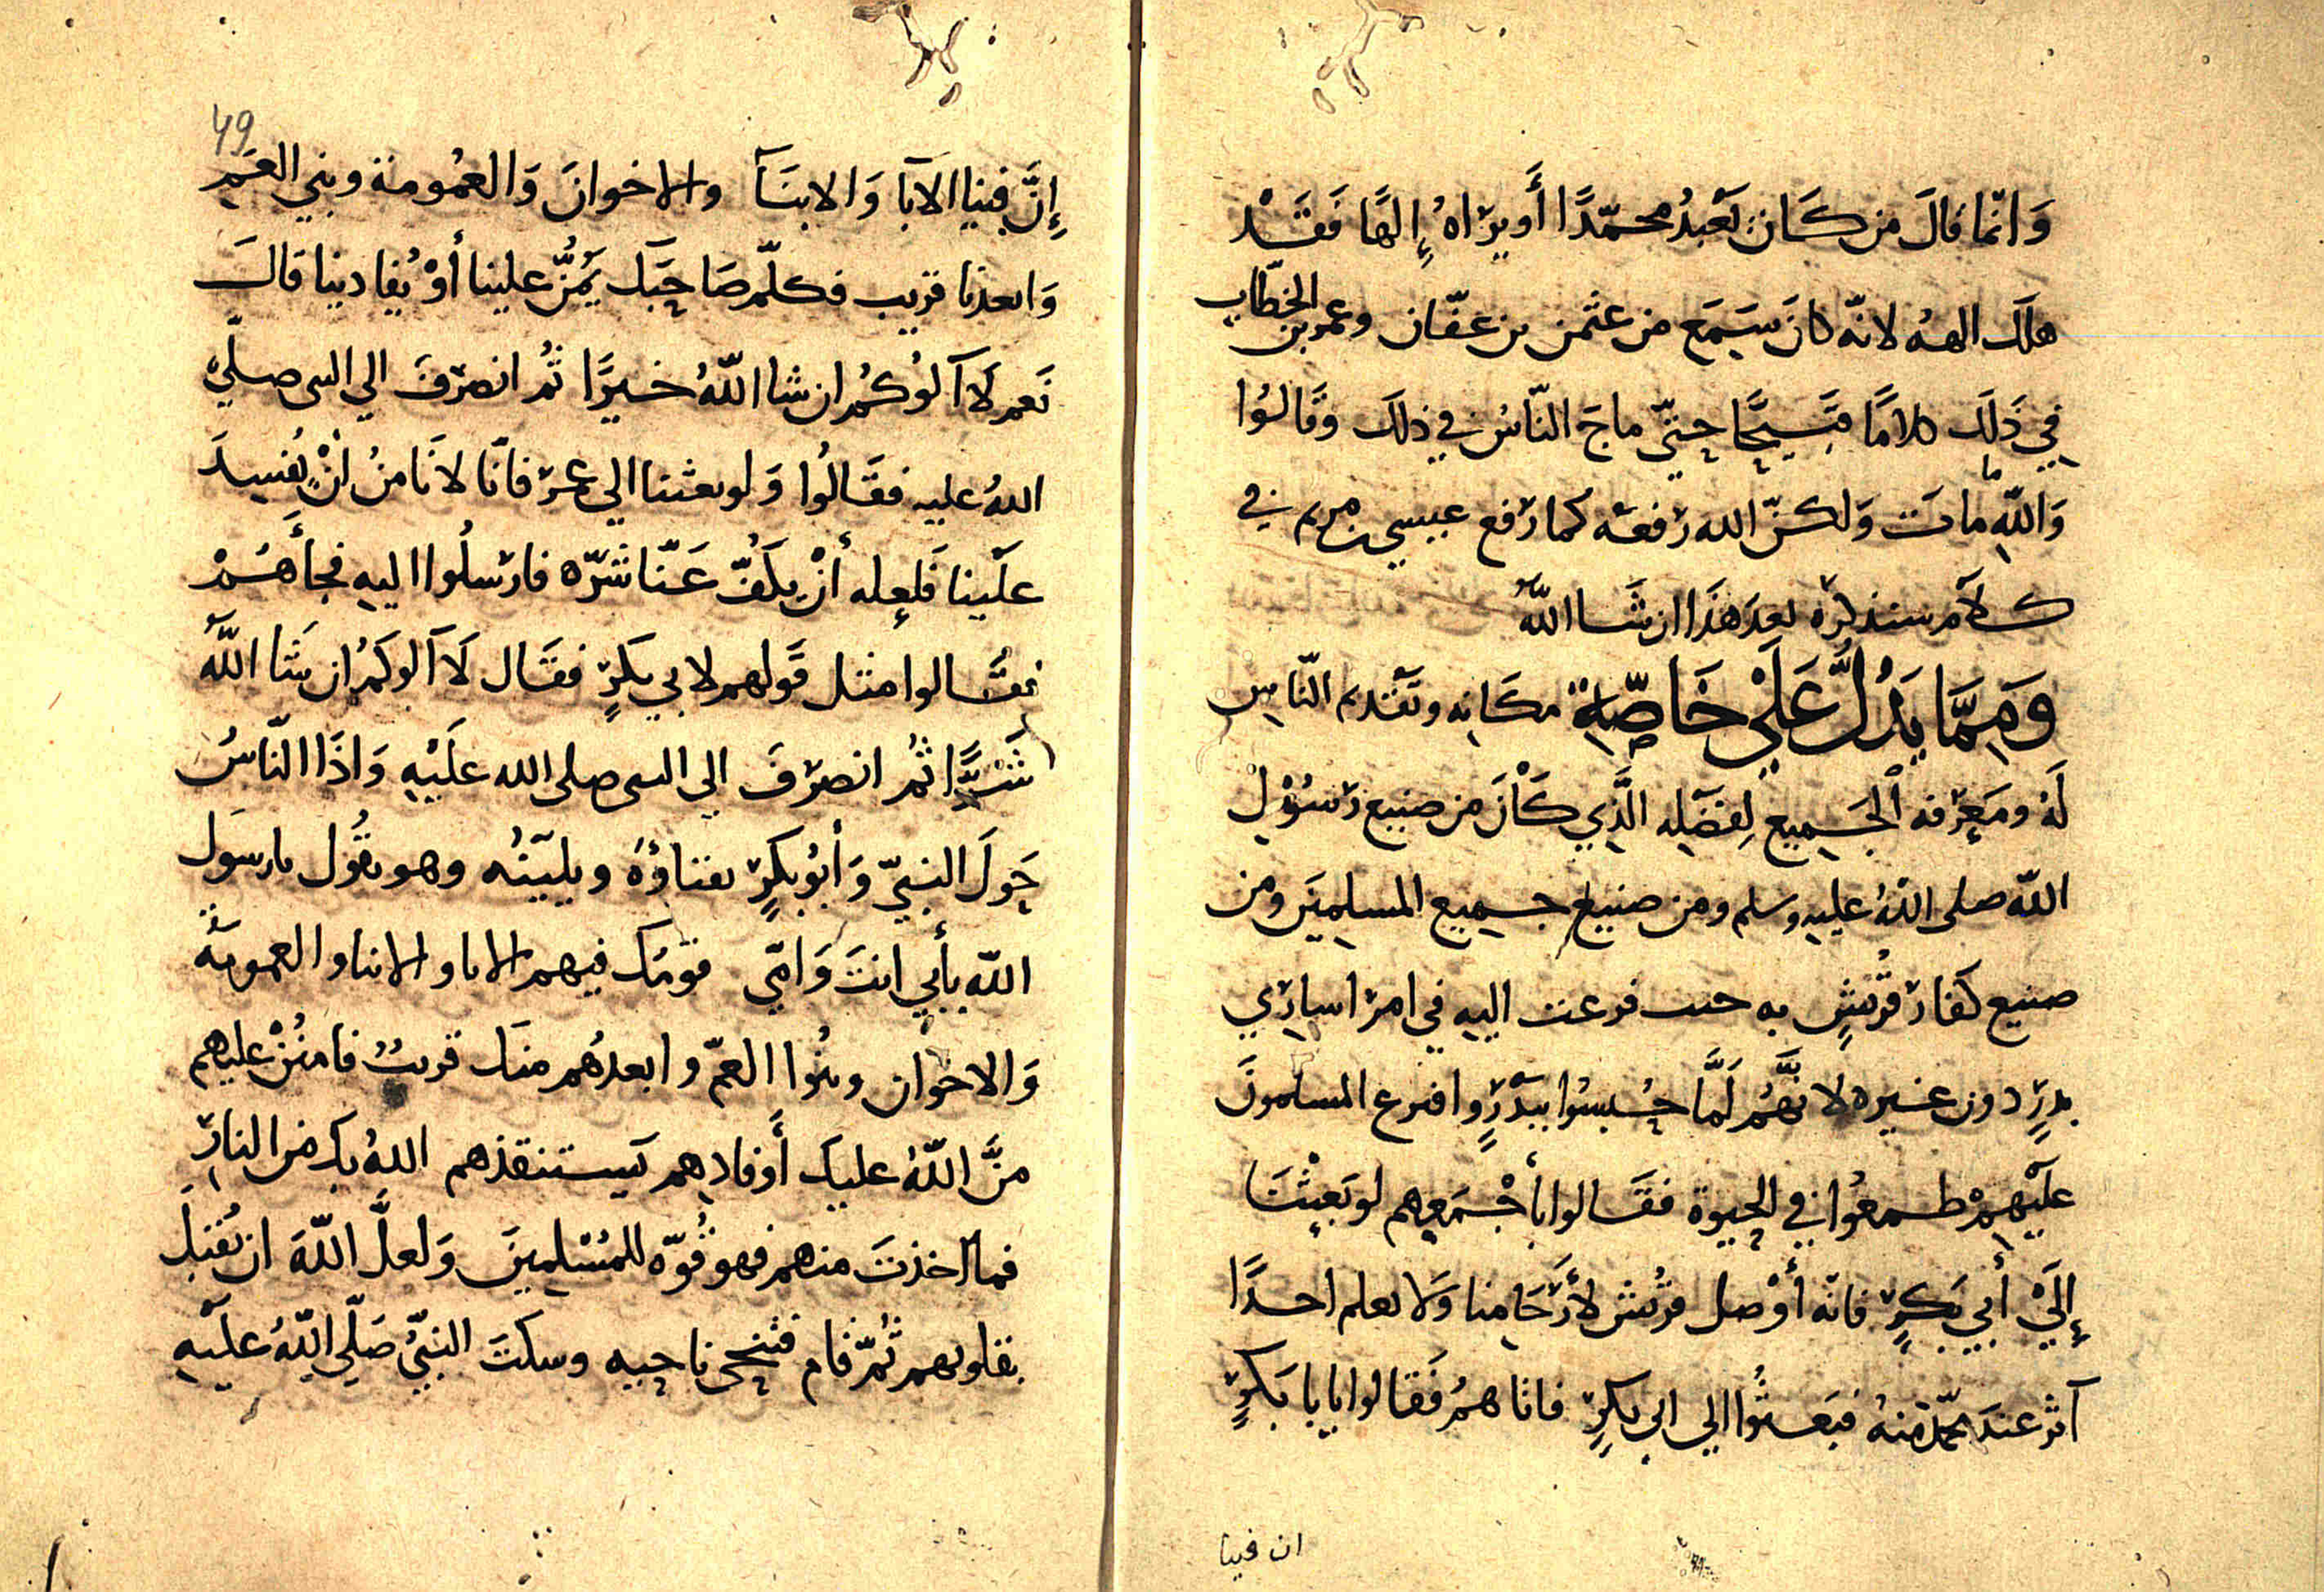 وَانّما قالَ من كَان يَعْبدُ محمّدًا أَو يرَاهُ إِلهًا فَقَدْ
هلَك الهه لانّه كانَ سَمِعَ من عثمن بن عفّان وعمر بن الخطّاب
فِي ذَلِكَ كلامًا قَبِيحًا حتّى ماجَ النّاسُ في ذلك وقَالوُا
وَاللّهِ ما ماتَ وَلكنّ الله رَفعَه كما رَفع عيسى بن مريم في
كلَام سنذكرُه بعدَ هَذَا ان شَا اللّهُ
وَمِمَّا يَدُلُّ عَلَى خَاصِّةِ مكَانِه وتَقدم النّاسِ
لَهُ ومَعِرْفة الجَميِع لِفضَلِه الَّذِي كَانَ من صنيع رَسُوْل
اللّه صلى اللهُ عليهِ وسلم ومن صنيع جميع المسلِميَن ومن
صنيع كفار قُريشٍ به حيث فزعت اليهِ في امر اسارَي
بدرٍ دون غيره لانَّهُم لَمَّا حُبِسُوا ببَدْرٍ واقترع المسلمونَ
علَيْهِمْ طمعُوا في الحيوة فقَالوا بأَجْمَعِهم لو بَعِثْنَا
إِلَىْ أبي بَكرٍ فانّه أَوْصل قُريش لأَرْحَامِنا وَلا نعلم احدًا
آثر عندَ محمّد مِنهُ فبَعثُوا الي ابي بكرٍ فاتاهمُ فَقالوا يابا بَكرٍ
ان فينا
49
إِنَّ فِينا الآبا وَالابنَآ والاخوانَ وَالعُمومة وبني العَم
وَابعدنا قريب فكلّم صَاحِبَك يَمُنُّ علينا أَوْ يُفادينا قالَ
نَعم لَا آلوُكُم ان شا اللّهُ خيرًا ثُم انصرَفَ الي النبي صلّى
اللهُ عليهِ فقَالُوا وَلو بعثنا الي عمرَ فانّا لانَامنُ انْ يُفسِدَ
علَينا فلَعله أنْ يكفَّ عَنّا شَرّه فارسلُوا اليهِ فجأَهُمْ
فقَالوا مثل قَولهم لابي بكرٍ فقَال لَا آلوكمُ ان شَا اللّهُ
شَرًّا ثُم انصرَفَ الي النبي صلى الله علَيْهِ وَاذَا النّاسُ
حَولَ النبيّ وَأَبوُ بكرٍ يفثاؤُهُ ويلينُه وهو يقُول يارسوَل
اللّه بأَبي انتَ وَامّي قومك فيهم الابا والابنا والعمومَةُ
وَالاخوان وبنُوا العمّ وابعدُهم منَك قريبُ فامنُنْ عليهم
منَّ اللّهُ عليك أَو فادِهم يَستنقذهم اللهُ بك من النارِ
فما اخذتَ منهم فهو قُوّه للمُسْلِمينَ وَلعلَّ اللّهَ ان يُقبلَ
بقلوبهم ثُمّ قام فتنحى ناحيه وسكتَ النبيُّ صَلّي اللّهُ علَيهِ